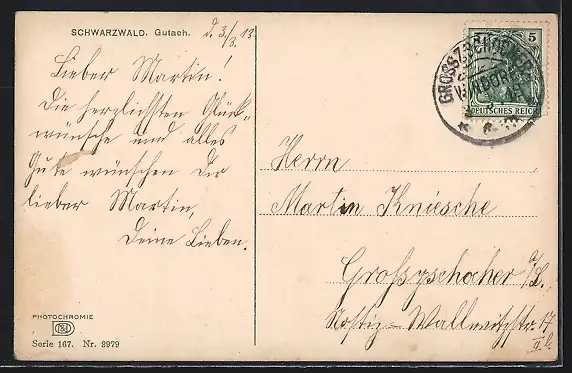 SCHWARZWALD. Gutach.
d. 3/3. 13
Lieber Martin!
Die herzlichsten Glück-
wünsche und alles
Gute wünschen Dir
lieber Martin,
Deine Lieben.
PHOTOCHROMIE
Serie 167. Nr. 2979
5
DEUTSCHES REICH
GROSSZSCHOCHER
WINDORF
Herrn
Martin Kniesche
Großzschocher a/L.
Nostiz-Wallwitzstr. 17
II l.